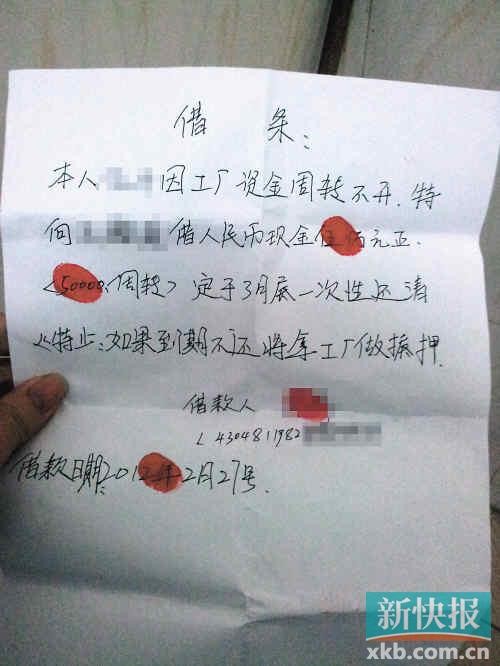 借 条:
本人 因工厂资金周转不开.特
向 借人民币现金伍万元正.
<50000.周转> 定于3月底一次性还清
特此:如果到期不还将拿工厂做抵押.
借款人
(4304811982
借款日期:2012年2月27号.
新快报
xkb.com.cn